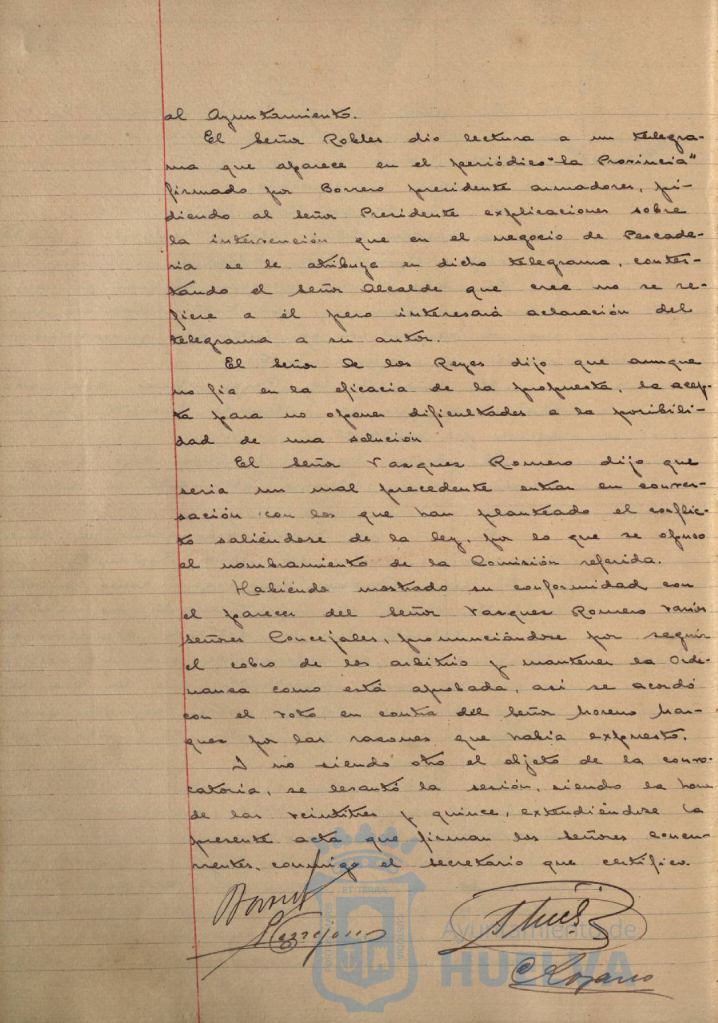 al Ayuntamiento.
El Señor Robles dio lectura a un telegra-
ma que aparece en el periódico "La Provincia"
firmado por Borrero presidente armadores, pi-
diendo al Señor Presidente explicaciones sobre
la intervención que en el negocio de Pescade-
ria se le atribuye en dicho telegrama, contes-
tando el Señor Alcalde que cree no se re-
fiere a él pero interesará aclaración del
telegrama a su autor.
El Señor de los Reyes dijo que aunque
no fia en la eficacia de la propuesta, la acep-
ta para no oponer dificultades a la posibili-
dad de una solución
El Señor Vazquez Romero dijo que
seria un mal precedente entrar en conver-
sación con los que han planteado el conflic-
to saliéndose de la ley, por lo que se opuso
al nombramiento de la Comisión referida.
Habiendo mostrado su conformidad con
el parecer del Señor Vazquez Romero varios
Señores Concejales, pronunciándose por seguir
el cobro de los arbitrio y mantener la Orde-
nanza como está aprobada, asi se acordó
con el voto en contra del Señor Moreno Mar-
quez por las razones que habia expuesto.
I no siendo otro el objeto de la convo-
catoria, se levantó la sesión, siendo la hora
de las veintitres y quince, extendiéndose la
presente acta que firman los señores concu-
rrentes, conmigo el secretario que certifico.
Ayuntamiento de
HUELVA